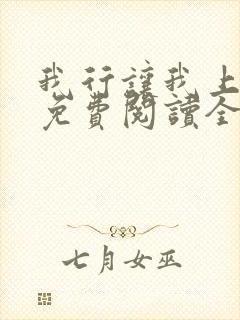 我行讓我上
免費閱讀全
七月女巫